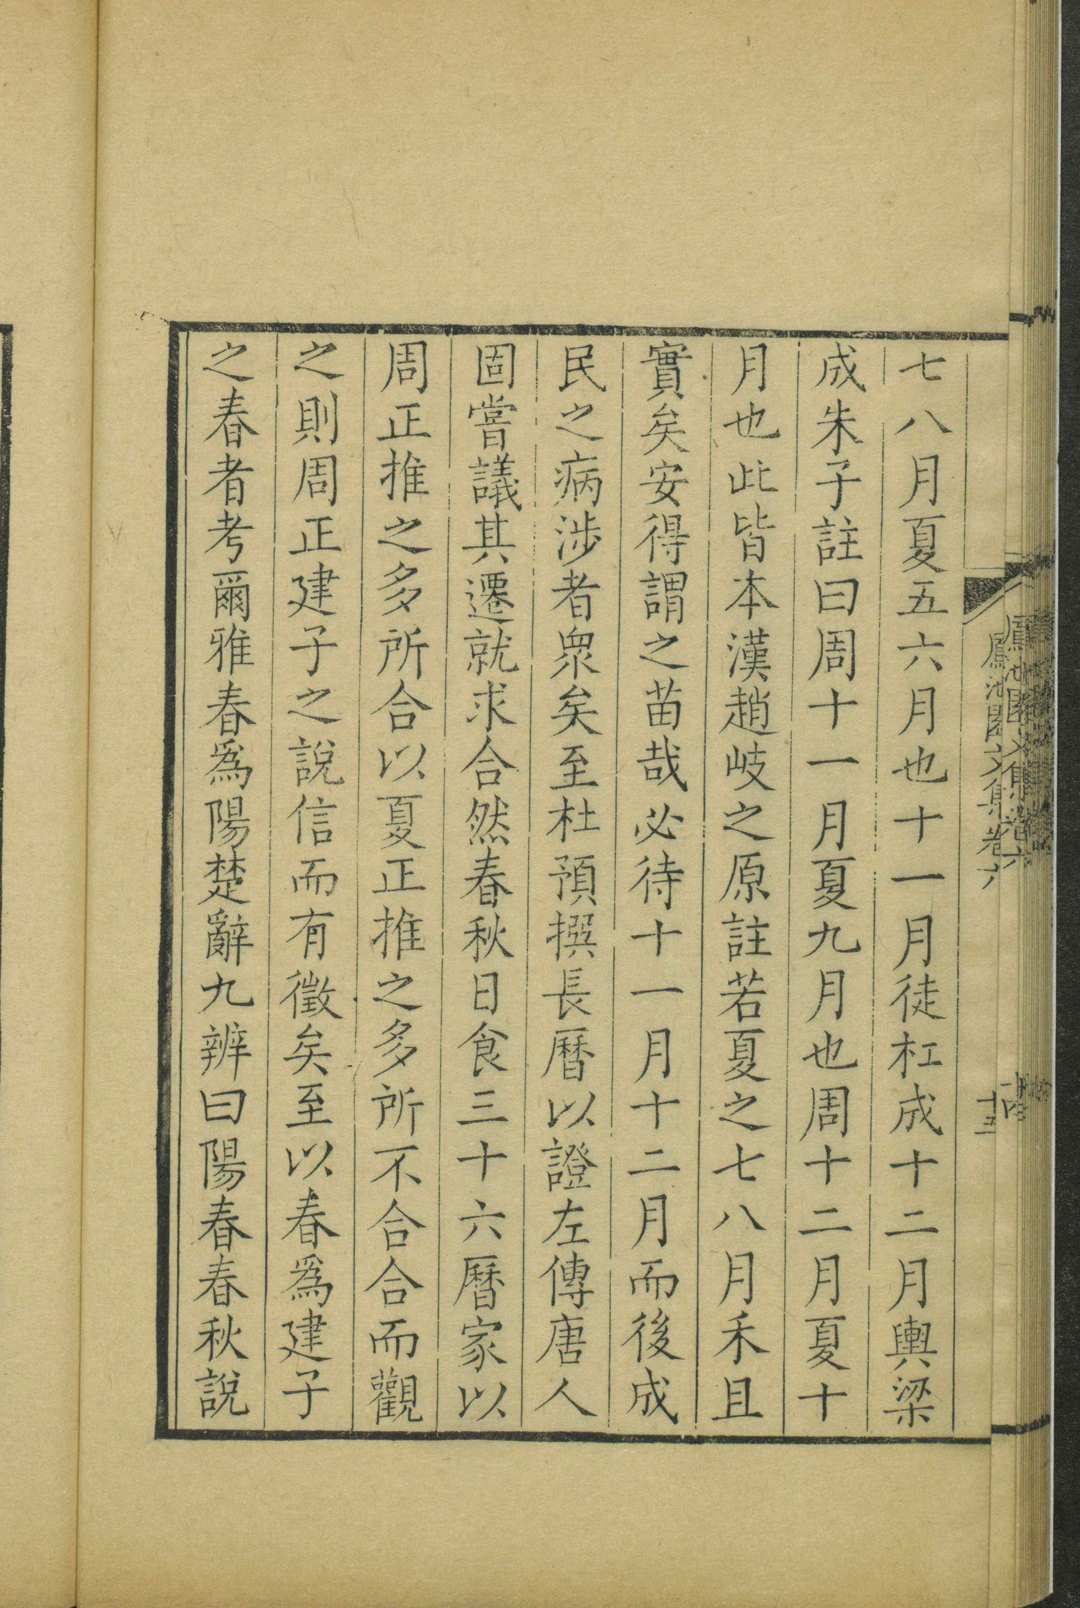 鳳池園文集卷六
十五
七八月夏五六月也十一月徒杠成十二月輿梁
成朱子註曰周十一月夏九月也周十二月夏十
月也此皆本漢趙岐之原註若夏之七八月禾且
實矣安得謂之苗哉必待十一月十二月而後成
民之病涉者衆矣至杜預撰長曆以證左傳唐人
固嘗議其遷就求合然春秋日食三十六曆家以
周正推之多所合以夏正推之多所不合合而觀
之則周正建子之說信而有徵矣至以春為建子
之春者考爾雅春為陽楚辭九辨曰陽春春秋說